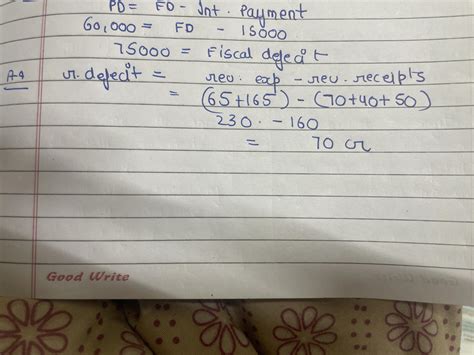 PD = FD - Int. Payment
60,000 = FD - 15000
75000 = Fiscal defecit
A-4 r. defecit = rev. exp - rev. receipts
= (65+165) - (70+40+50)
230 - 160
= 70 cr
Good Write